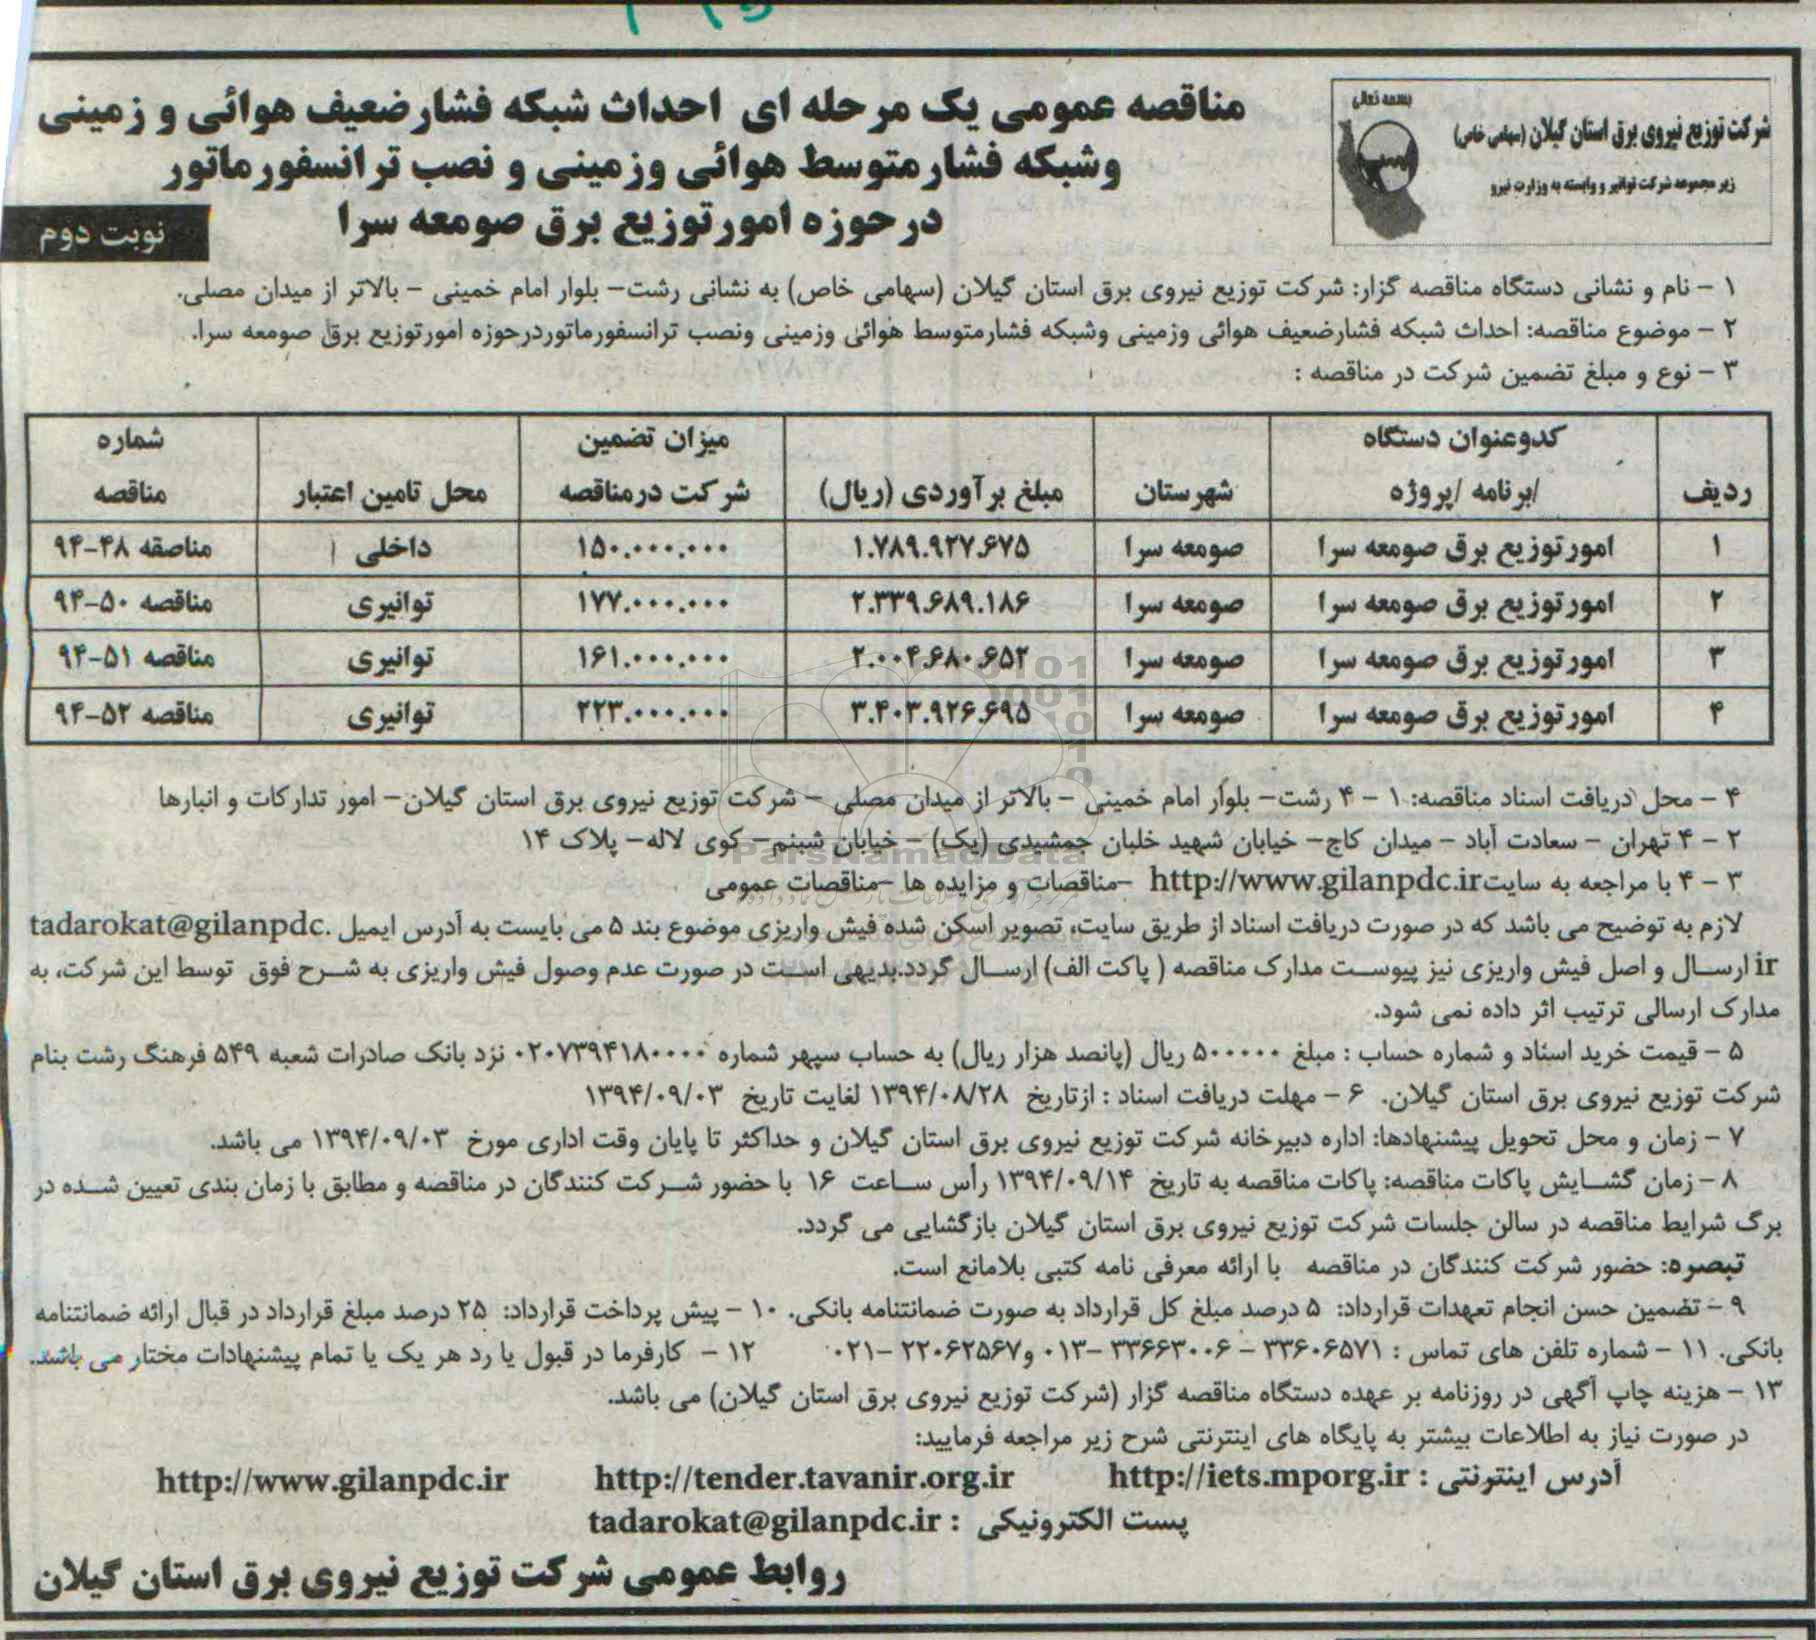 بسمه تعالی
شرکت توزیع نیروی برق استان گیلان (سهامی خاص)
زیر مجموعه شرکت توانیر و وابسته به وزارت نیرو
مناقصه عمومی یک مرحله ای احداث شبکه فشارضعیف هوائی و زمینی
وشبکه فشارمتوسط هوائی وزمینی و نصب ترانسفورماتور
درحوزه امورتوزیع برق صومعه سرا
نوبت دوم
۱ – نام و نشانی دستگاه مناقصه گزار: شرکت توزیع نیروی برق استان گیلان (سهامی خاص) به نشانی رشت– بلوار امام خمینی – بالاتر از میدان مصلی.
۲ – موضوع مناقصه: احداث شبکه فشارضعیف هوائی وزمینی وشبکه فشارمتوسط هوائی وزمینی ونصب ترانسفورماتوردرحوزه امورتوزیع برق صومعه سرا.
۳ – نوع و مبلغ تضمین شرکت در مناقصه :
ردیف | کدوعنوان دستگاه /برنامه /پروژه | شهرستان | مبلغ برآوردی (ریال) | میزان تضمین شرکت درمناقصه | محل تامین اعتبار | شماره مناقصه
۱ | امورتوزیع برق صومعه سرا | صومعه سرا | ۱.۷۸۹.۹۲۷.۶۷۵ | ۱۵۰.۰۰۰.۰۰۰ | داخلی | مناصقه ۴۸-۹۴
۲ | امورتوزیع برق صومعه سرا | صومعه سرا | ۲.۳۳۹.۶۸۹.۱۸۶ | ۱۷۷.۰۰۰.۰۰۰ | توانیری | مناقصه ۵۰-۹۴
۳ | امورتوزیع برق صومعه سرا | صومعه سرا | ۲.۰۰۴.۶۸۰.۶۵۲ | ۱۶۱.۰۰۰.۰۰۰ | توانیری | مناقصه ۵۱-۹۴
۴ | امورتوزیع برق صومعه سرا | صومعه سرا | ۳.۴۰۳.۹۲۶.۶۹۵ | ۲۲۳.۰۰۰.۰۰۰ | توانیری | مناقصه ۵۲-۹۴
۴ – محل دریافت اسناد مناقصه: ۱ – ۴ رشت– بلوار امام خمینی – بالاتر از میدان مصلی – شرکت توزیع نیروی برق استان گیلان– امور تدارکات و انبارها
۲ – ۴ تهران – سعادت آباد – میدان کاج– خیابان شهید خلبان جمشیدی (یک) – خیابان شبنم– کوی لاله– پلاک ۱۴
۳ – ۴ با مراجعه به سایت http://www.gilanpdc.ir –مناقصات و مزایده ها –مناقصات عمومی
لازم به توضیح می باشد که در صورت دریافت اسناد از طریق سایت، تصویر اسکن شده فیش واریزی موضوع بند ۵ می بایست به آدرس ایمیل tadarokat@gilanpdc.
ir ارسال و اصل فیش واریزی نیز پیوست مدارک مناقصه ( پاکت الف) ارسال گردد.بدیهی است در صورت عدم وصول فیش واریزی به شرح فوق توسط این شرکت، به
مدارک ارسالی ترتیب اثر داده نمی شود.
۵ – قیمت خرید اسناد و شماره حساب : مبلغ ۵۰۰۰۰۰ ریال (پانصد هزار ریال) به حساب سپهر شماره ۰۲۰۷۳۹۴۱۸۰۰۰۰ نزد بانک صادرات شعبه ۵۴۹ فرهنگ رشت بنام
شرکت توزیع نیروی برق استان گیلان. ۶ – مهلت دریافت اسناد : ازتاریخ ۱۳۹۴/۰۸/۲۸ لغایت تاریخ ۱۳۹۴/۰۹/۰۳
۷ – زمان و محل تحویل پیشنهادها: اداره دبیرخانه شرکت توزیع نیروی برق استان گیلان و حداکثر تا پایان وقت اداری مورخ ۱۳۹۴/۰۹/۰۳ می باشد.
۸ – زمان گشایش پاکات مناقصه: پاکات مناقصه به تاریخ ۱۳۹۴/۰۹/۱۴ رأس ساعت ۱۶ با حضور شرکت کنندگان در مناقصه و مطابق با زمان بندی تعیین شده در
برگ شرایط مناقصه در سالن جلسات شرکت توزیع نیروی برق استان گیلان بازگشایی می گردد.
تبصره: حضور شرکت کنندگان در مناقصه با ارائه معرفی نامه کتبی بلامانع است.
۹ – تضمین حسن انجام تعهدات قرارداد: ۵ درصد مبلغ کل قرارداد به صورت ضمانتنامه بانکی. ۱۰ – پیش پرداخت قرارداد: ۲۵ درصد مبلغ قرارداد در قبال ارائه ضمانتنامه
بانکی. ۱۱ – شماره تلفن های تماس : ۳۳۶۰۶۵۷۱ – ۳۳۶۶۳۰۰۶ –۰۱۳ و۲۲۰۶۲۵۶۷ –۰۲۱ ۱۲ – کارفرما در قبول یا رد هر یک یا تمام پیشنهادات مختار می باشد.
۱۳ – هزینه چاپ آگهی در روزنامه بر عهده دستگاه مناقصه گزار (شرکت توزیع نیروی برق استان گیلان) می باشد.
در صورت نیاز به اطلاعات بیشتر به پایگاه های اینترنتی شرح زیر مراجعه فرمایید:
آدرس اینترنتی : http://iets.mporg.ir http://tender.tavanir.org.ir http://www.gilanpdc.ir
پست الکترونیکی : tadarokat@gilanpdc.ir
روابط عمومی شرکت توزیع نیروی برق استان گیلان
ParsNamadData